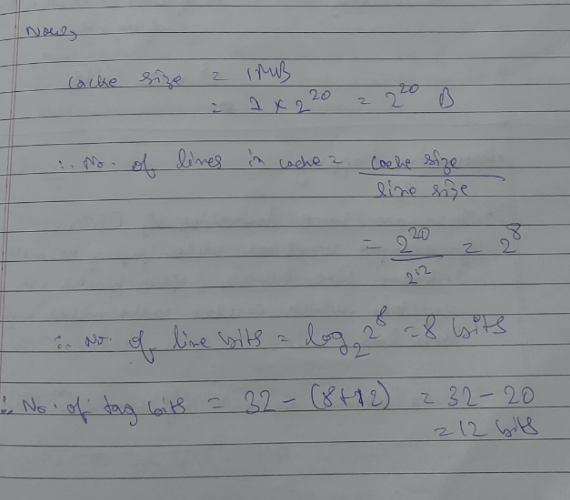 Now,
cache size = 1MB
= 1 × 2^20 = 2^20 B
∴ No. of lines in cache = cache size / line size
= 2^20 / 2^12 = 2^8
∴ No. of line bits = log_2 2^8 = 8 bits
∴ No. of tag bits = 32 - (8+12) = 32 - 20
= 12 bits